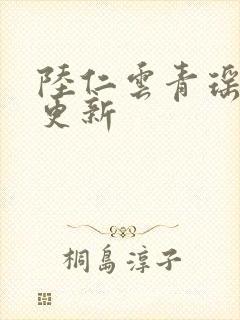 陸仁雲青瑶
更新
桐島淳子